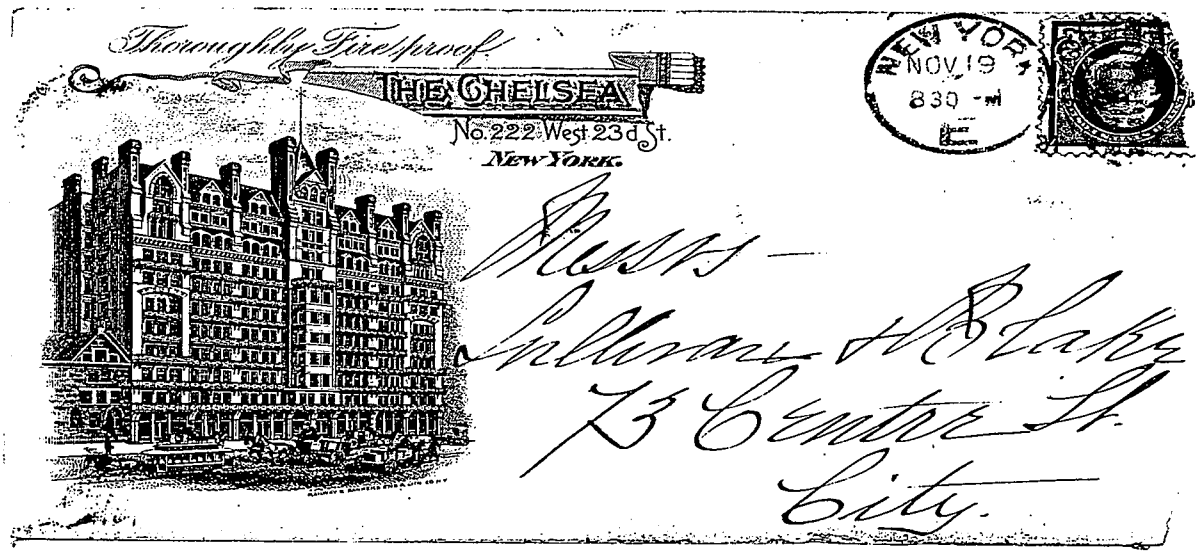 Thoroughly Fireproof
THE CHELSEA
No. 222 West 23d St.
NEW YORK.
NEW YORK
NOV 19
830 -M
E
Messrs —
Sullivan & Blake
73 Center St.
City.